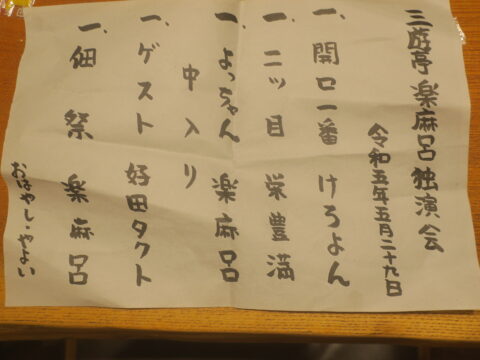 三遊亭楽麻呂独演会
令和五年五月二十九日
一、開口一番 けろよん
一、二ッ目 栄豊満
一、よっちゃん 楽麻呂
中入り
一、ゲスト 好田タクト
一、佃祭 楽麻呂
おはやし・やよい